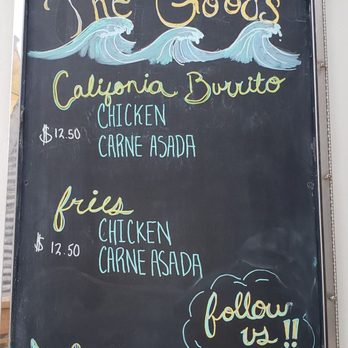 The Goods
Califonia Burrito
CHICKEN
$12.50
CARNE ASADA
fries
CHICKEN
$12.50
CARNE ASADA
follow
us!!